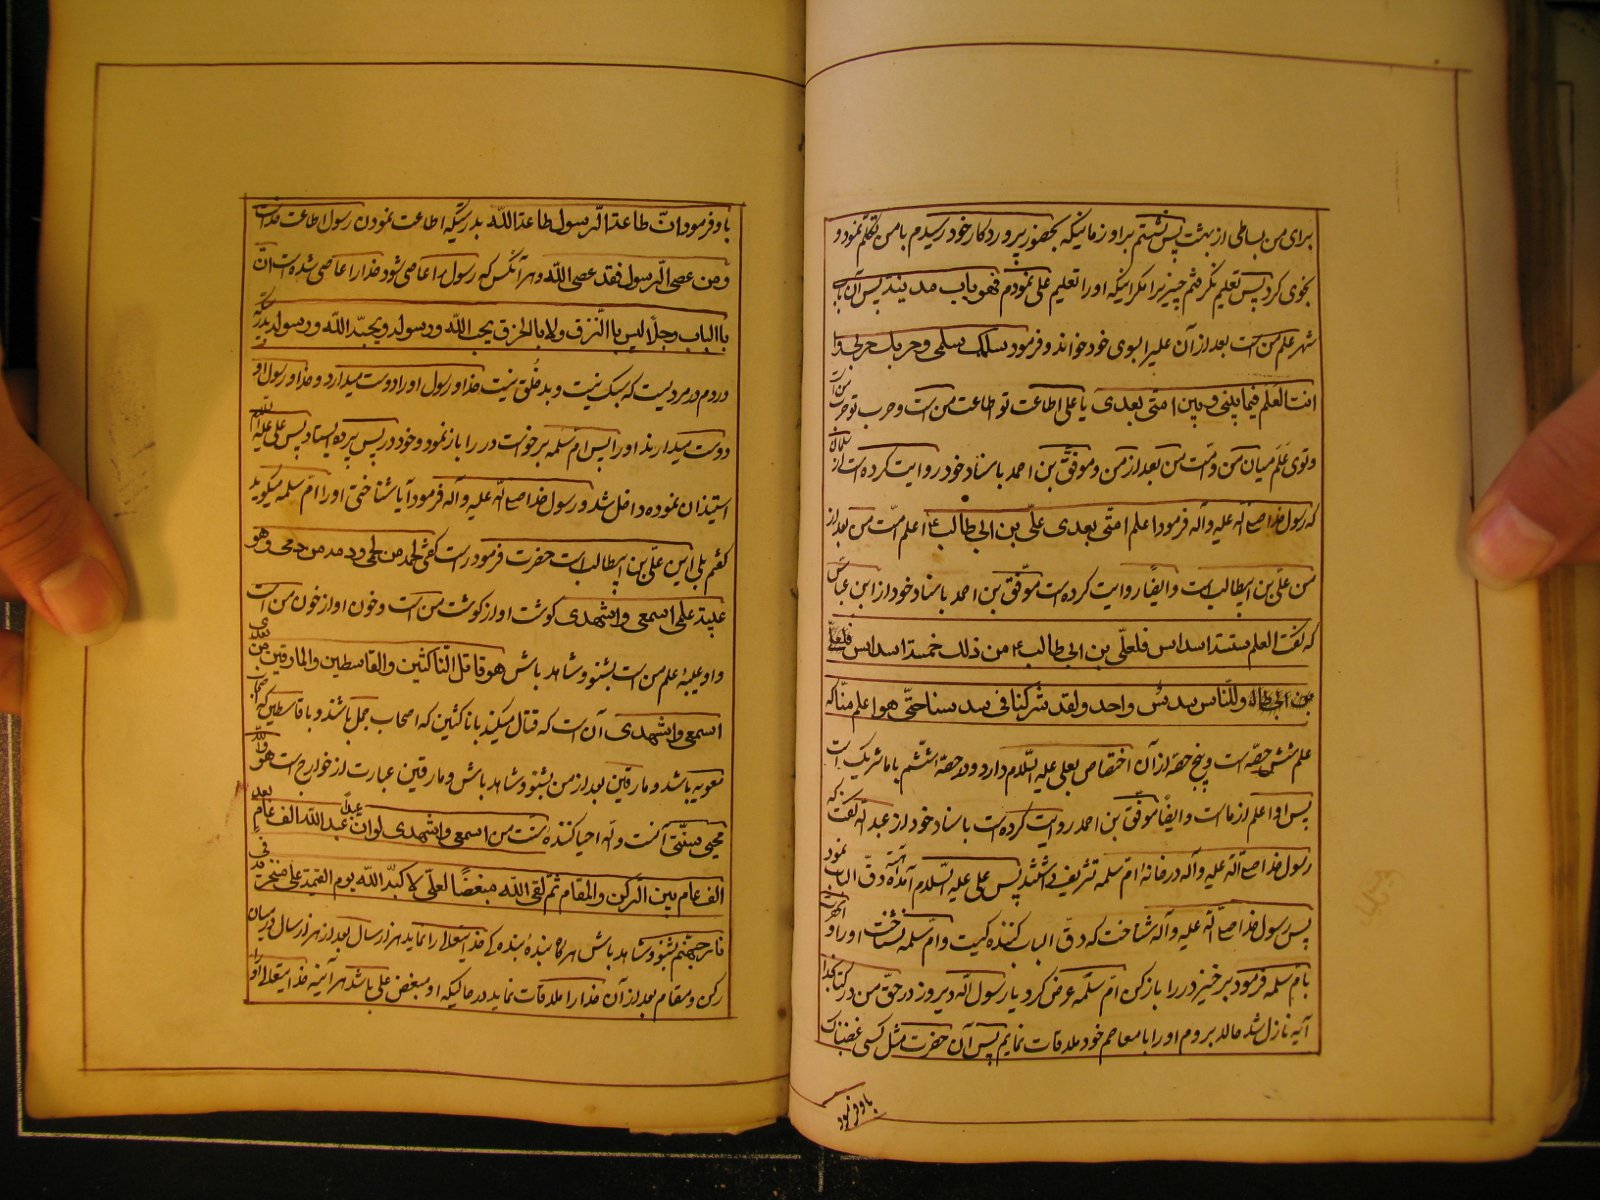 برای من بساطی از بهشت پس نشستم بر او زمانیکه بحضور پروردکار خود رسیدم با من تکلم نمود و
نجوی کرد پس تعلیم نکرفتم چیزیرا مکر اینکه او را تعلیم علی نمودم فهو باب مدینة پس آن باب
شهر علم من است بعد از آن علیرا بسوی خود خواند و فرمود سلمک سلمی و حربک حربی و
انت العلم فیما بینی و بین امتی بعدی یا علی اطاعت تو اطاعت من است و حرب تو حرب من است
و توی علم میان من و امت من بعد از من و موفق بن احمد باسناد خود روایت کرده است از سلمان
که رسول خدا صلی الله علیه و آله فرمود اعلم امتی بعدی علی بن ابی طالب اعلم امت من بعد از
من علی بن ابیطالب است و ایضا روایت کرده است موفق بن احمد باسناد خود از ابن عباس
که گفت العلم ستة اسداس فلعلی بن ابی طالب من ذلک خمسة اسداس
و للناس سدس واحد و لقد شرکنا فی سدسنا حتی هو اعلم منا که
علم شش حصه است و پنج حصه از آن اختصاص بعلی علیه السلام دارد و در حصه ششم با ما شریک است
پس او اعلم از ما است و ایضا موفق بن احمد روایت کرده است باسناد خود از عبد الله که گفت
رسول خدا صلی الله علیه و آله در خانه ام سلمه تشریف داشتند پس علی علیه السلام آمده دق الباب نمود
پس رسول خدا صلی الله علیه و آله شناخت که دق الباب کننده کیست و ام سلمه نشناخت او را و
بام سلمه فرمود برخیز در را باز کن ام سلمه عرض کرد یا رسول الله دیروز در حق من در کتاب خدا
آیه نازل شد حالد بروم او را با معاصم خود ملاقات نمایم پس آن حضرت مثل کسی غضبناک
باو فرمود
باو فرمود ان طاعة الرسول طاعة الله بدرستیکه اطاعت نمودن رسول اطاعت خدا است
و من عصی الرسول فقد عصی الله و هر آنکس که رسول را عاصی شود خدا را عاصی شده است ان
بالباب رجلا لیس بالنزق و لا بالخرق یحب الله و رسوله و یحبه الله و رسوله بدرستیکه
در دم در مردیست که سبک نیست و بد خلق نیست خدا و رسول او را دوست میدارد و خدا و رسول او
دوست میدارند او را پس ام سلمه برخواست در را باز نمود و خود در پس پرده ایستاد پس علی علیه السلام
استیذان نموده داخل شد و رسول خدا صلی الله علیه و آله فرمود آیا شناختی او را ام سلمه میکوید
کفتم بلی این علی بن ابیطالب است حضرت فرمود راست کفتی لحمه من لحمی و دمه من دمی و هو
عیبة علمی اسمعی و اشهدی کوشت او از کوشت من است و خون او از خون من است
و او عیبه علم من است بشنو و شاهد باش هو قاتل الناکثین و القاسطین و المارقین من بعدی
اسمعی و اشهدی آن است که قتال میکند با ناکثین که اصحاب جمل باشند و با قاسطین که اصحاب
معویه باشد و مارقین بعد از من بشنو و شاهد باش و مارقین عبارت از خوارج است هو والله
محیی سنتی است والله احیا کننده سنت من اسمعی و اشهدی لو ان عبدا عبد الله الف عام بعد
الف عام بین الرکن و المقام ثم لقی الله مبغضا لعلی لاکبه الله یوم القیمة علی منخره فی
نار جهنم بشنو و شاهد باش هر کاه بنده بنده کی خدایتعالی را نماید هزار سال بعد از هزار سال در میان
رکن و مقام بعد از آن خدا را ملاقات نماید در حالیکه او مبغض علی باشد هر آینه خدایتعالی او را